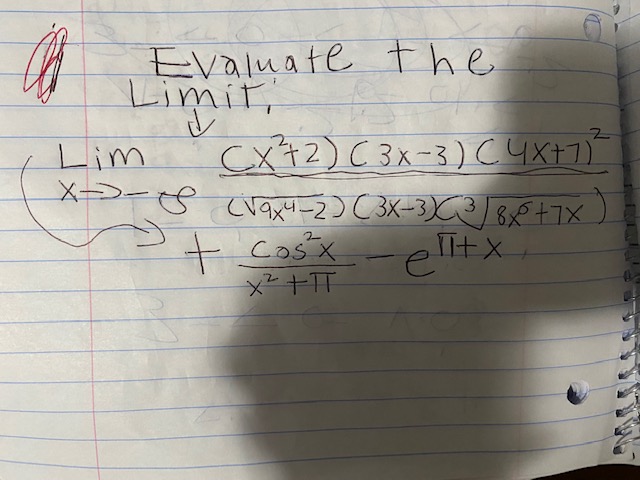 Evaluate the
Limit;
↓
Lim (x²+2)(3x-3)(4x+7)²
x→-∞ (√9x⁴-2)(3x-3)(³√8x⁶+7x)
+ cos²x / x²+π - e^π+x